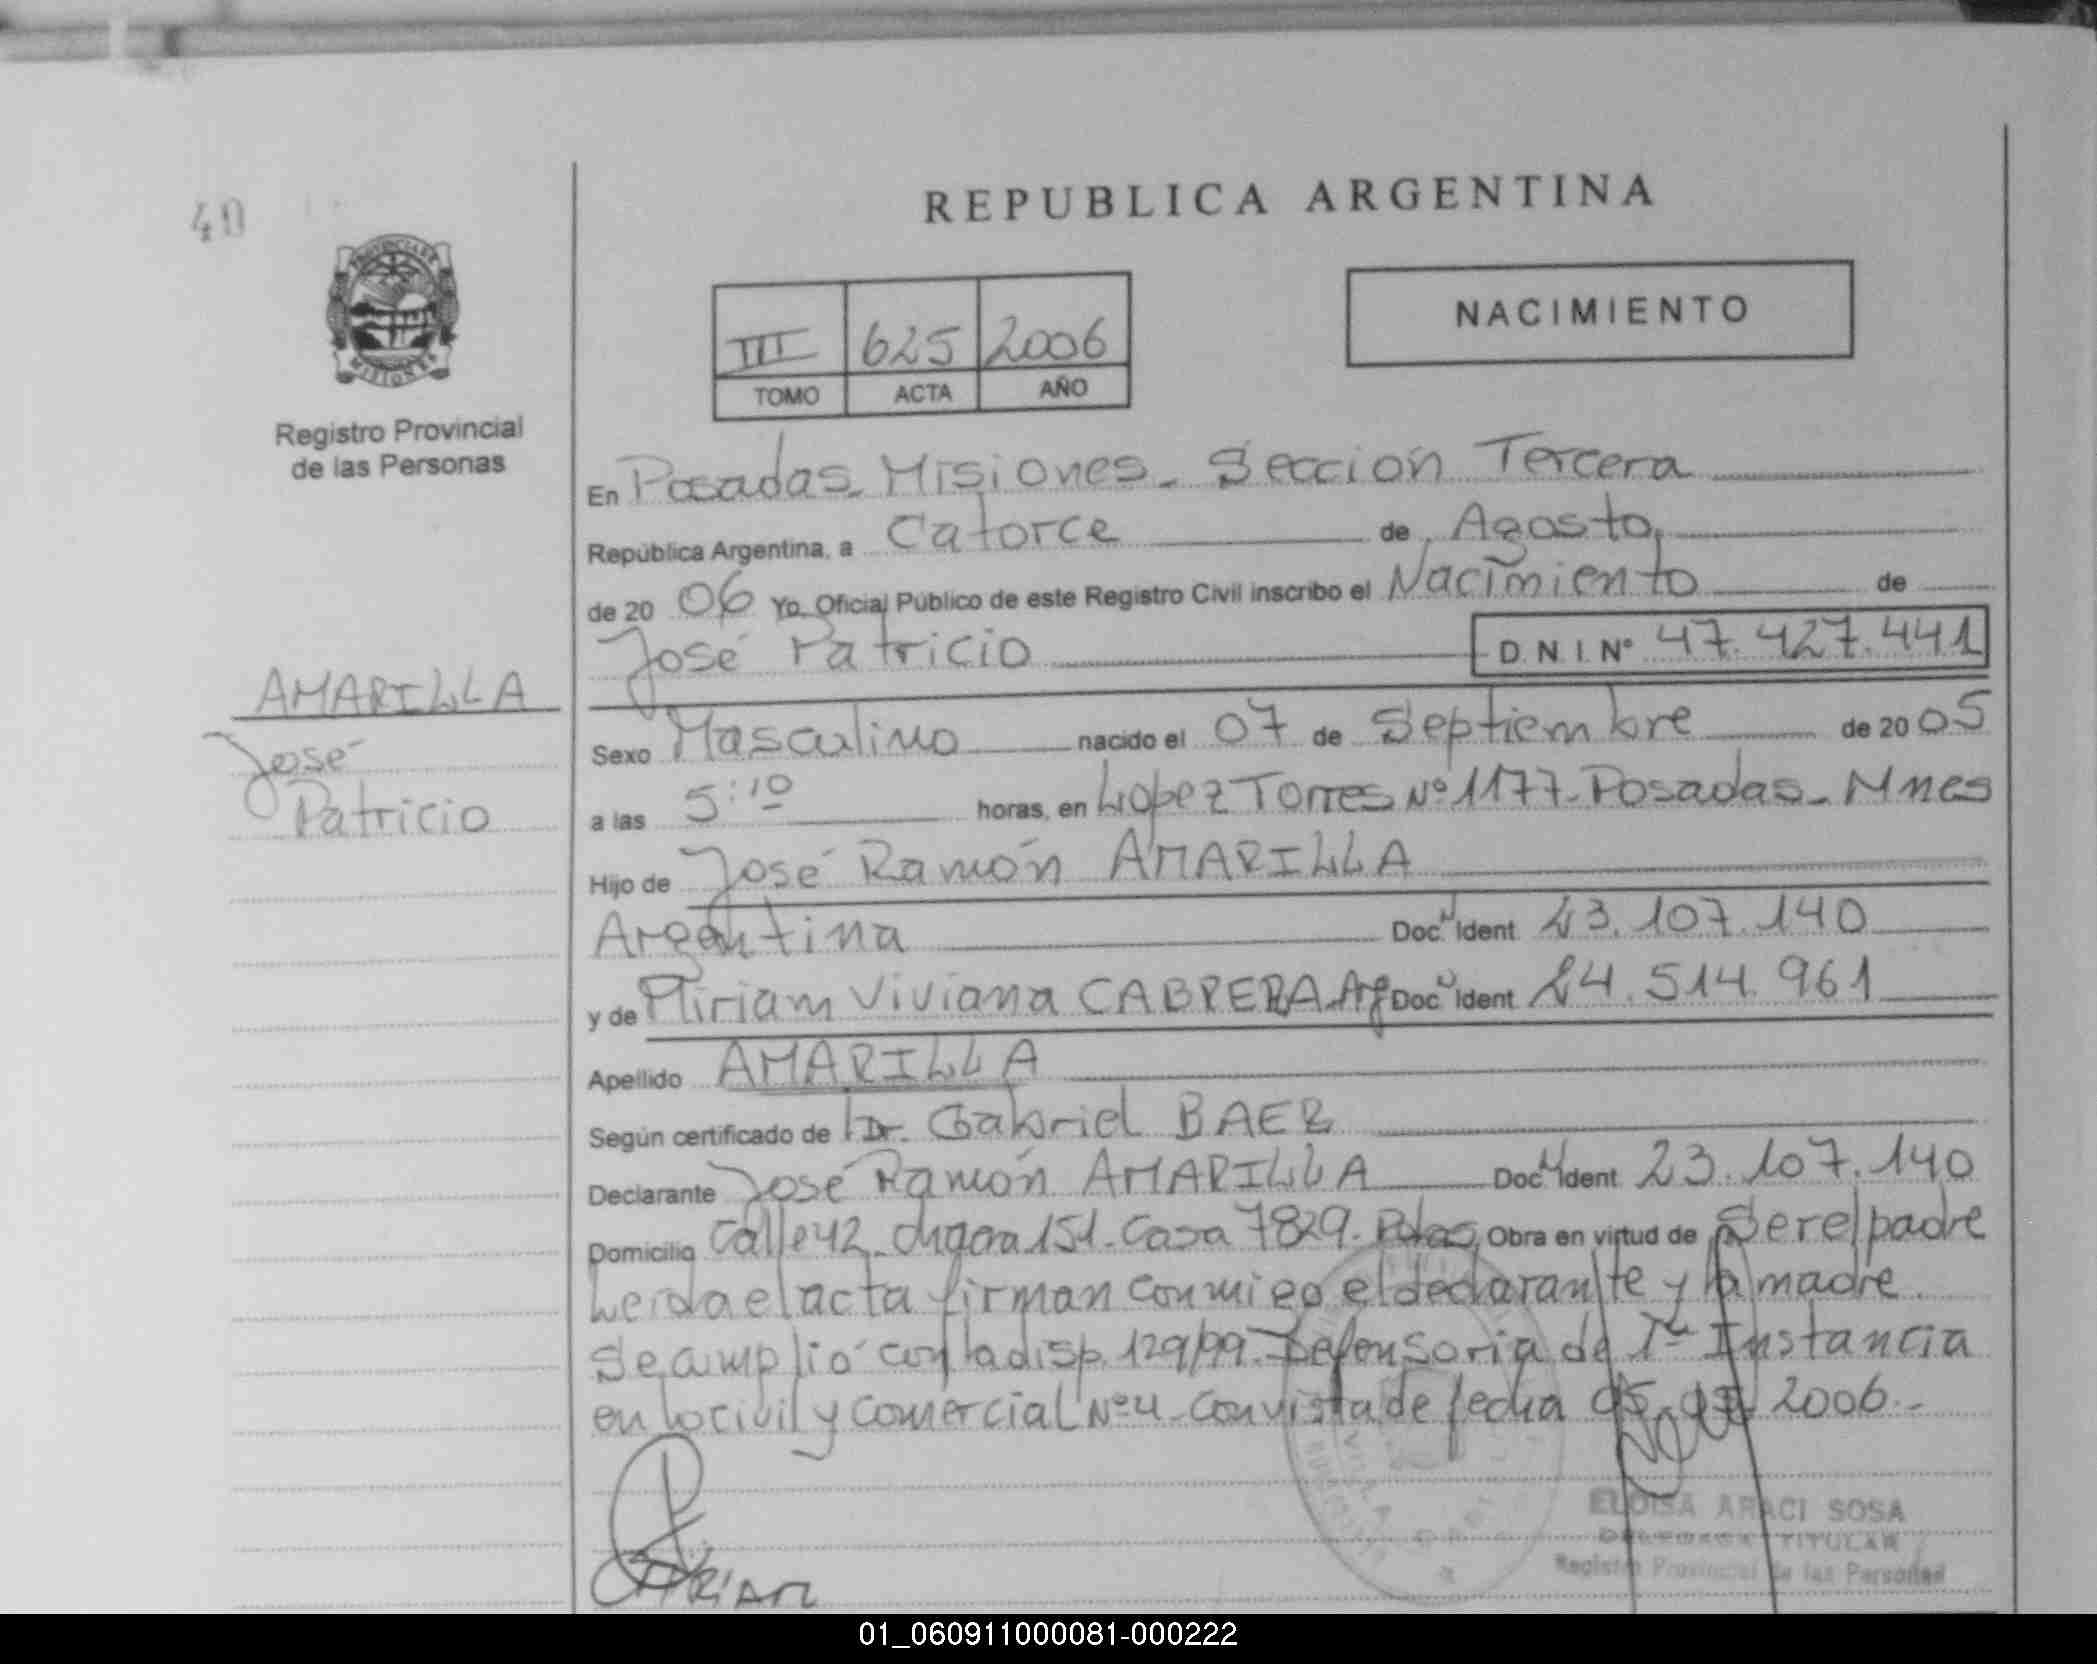 40
REPUBLICA ARGENTINA
NACIMIENTO
III 625 2006
TOMO ACTA AÑO
Registro Provincial
de las Personas
En Posadas. Misiones. Seccion Tercera
República Argentina, a Catorce de Agosto
de 2006 Yo, Oficial Público de este Registro Civil inscribo el Nacimiento de
José Patricio D.N.I. Nº 47.427.441
AMARILLA
José
Patricio
Sexo Masculino nacido el 07 de Septiembre de 2005
a las 5:10 horas, en Lopez Torres Nº 1177. Posadas. Mnes
Hijo de José Ramón AMARILLA
Argentina Doc. Ident 23.107.140
y de Miriam Viviana CABRERA Arg Doc. Ident 24.514.961
Apellido AMARILLA
Según certificado de Dr. Gabriel BAER
Declarante José Ramón AMARILLA Doc. Ident 23.107.140
Domicilio Calle 42. chacra 151. Casa 7829. Pdas Obra en virtud de Ser el padre
Leida el acta firman conmigo el declarante y la madre.
Se amplió con la disp. 129/99. Defensoria de 1ª Instancia
en lo civil y comercial Nº 4. Con vista de fecha 2006.-
ELOISA ARACI SOSA
DELEGADA TITULAR
Registro Provincial de las Personas
01_060911000081-000222